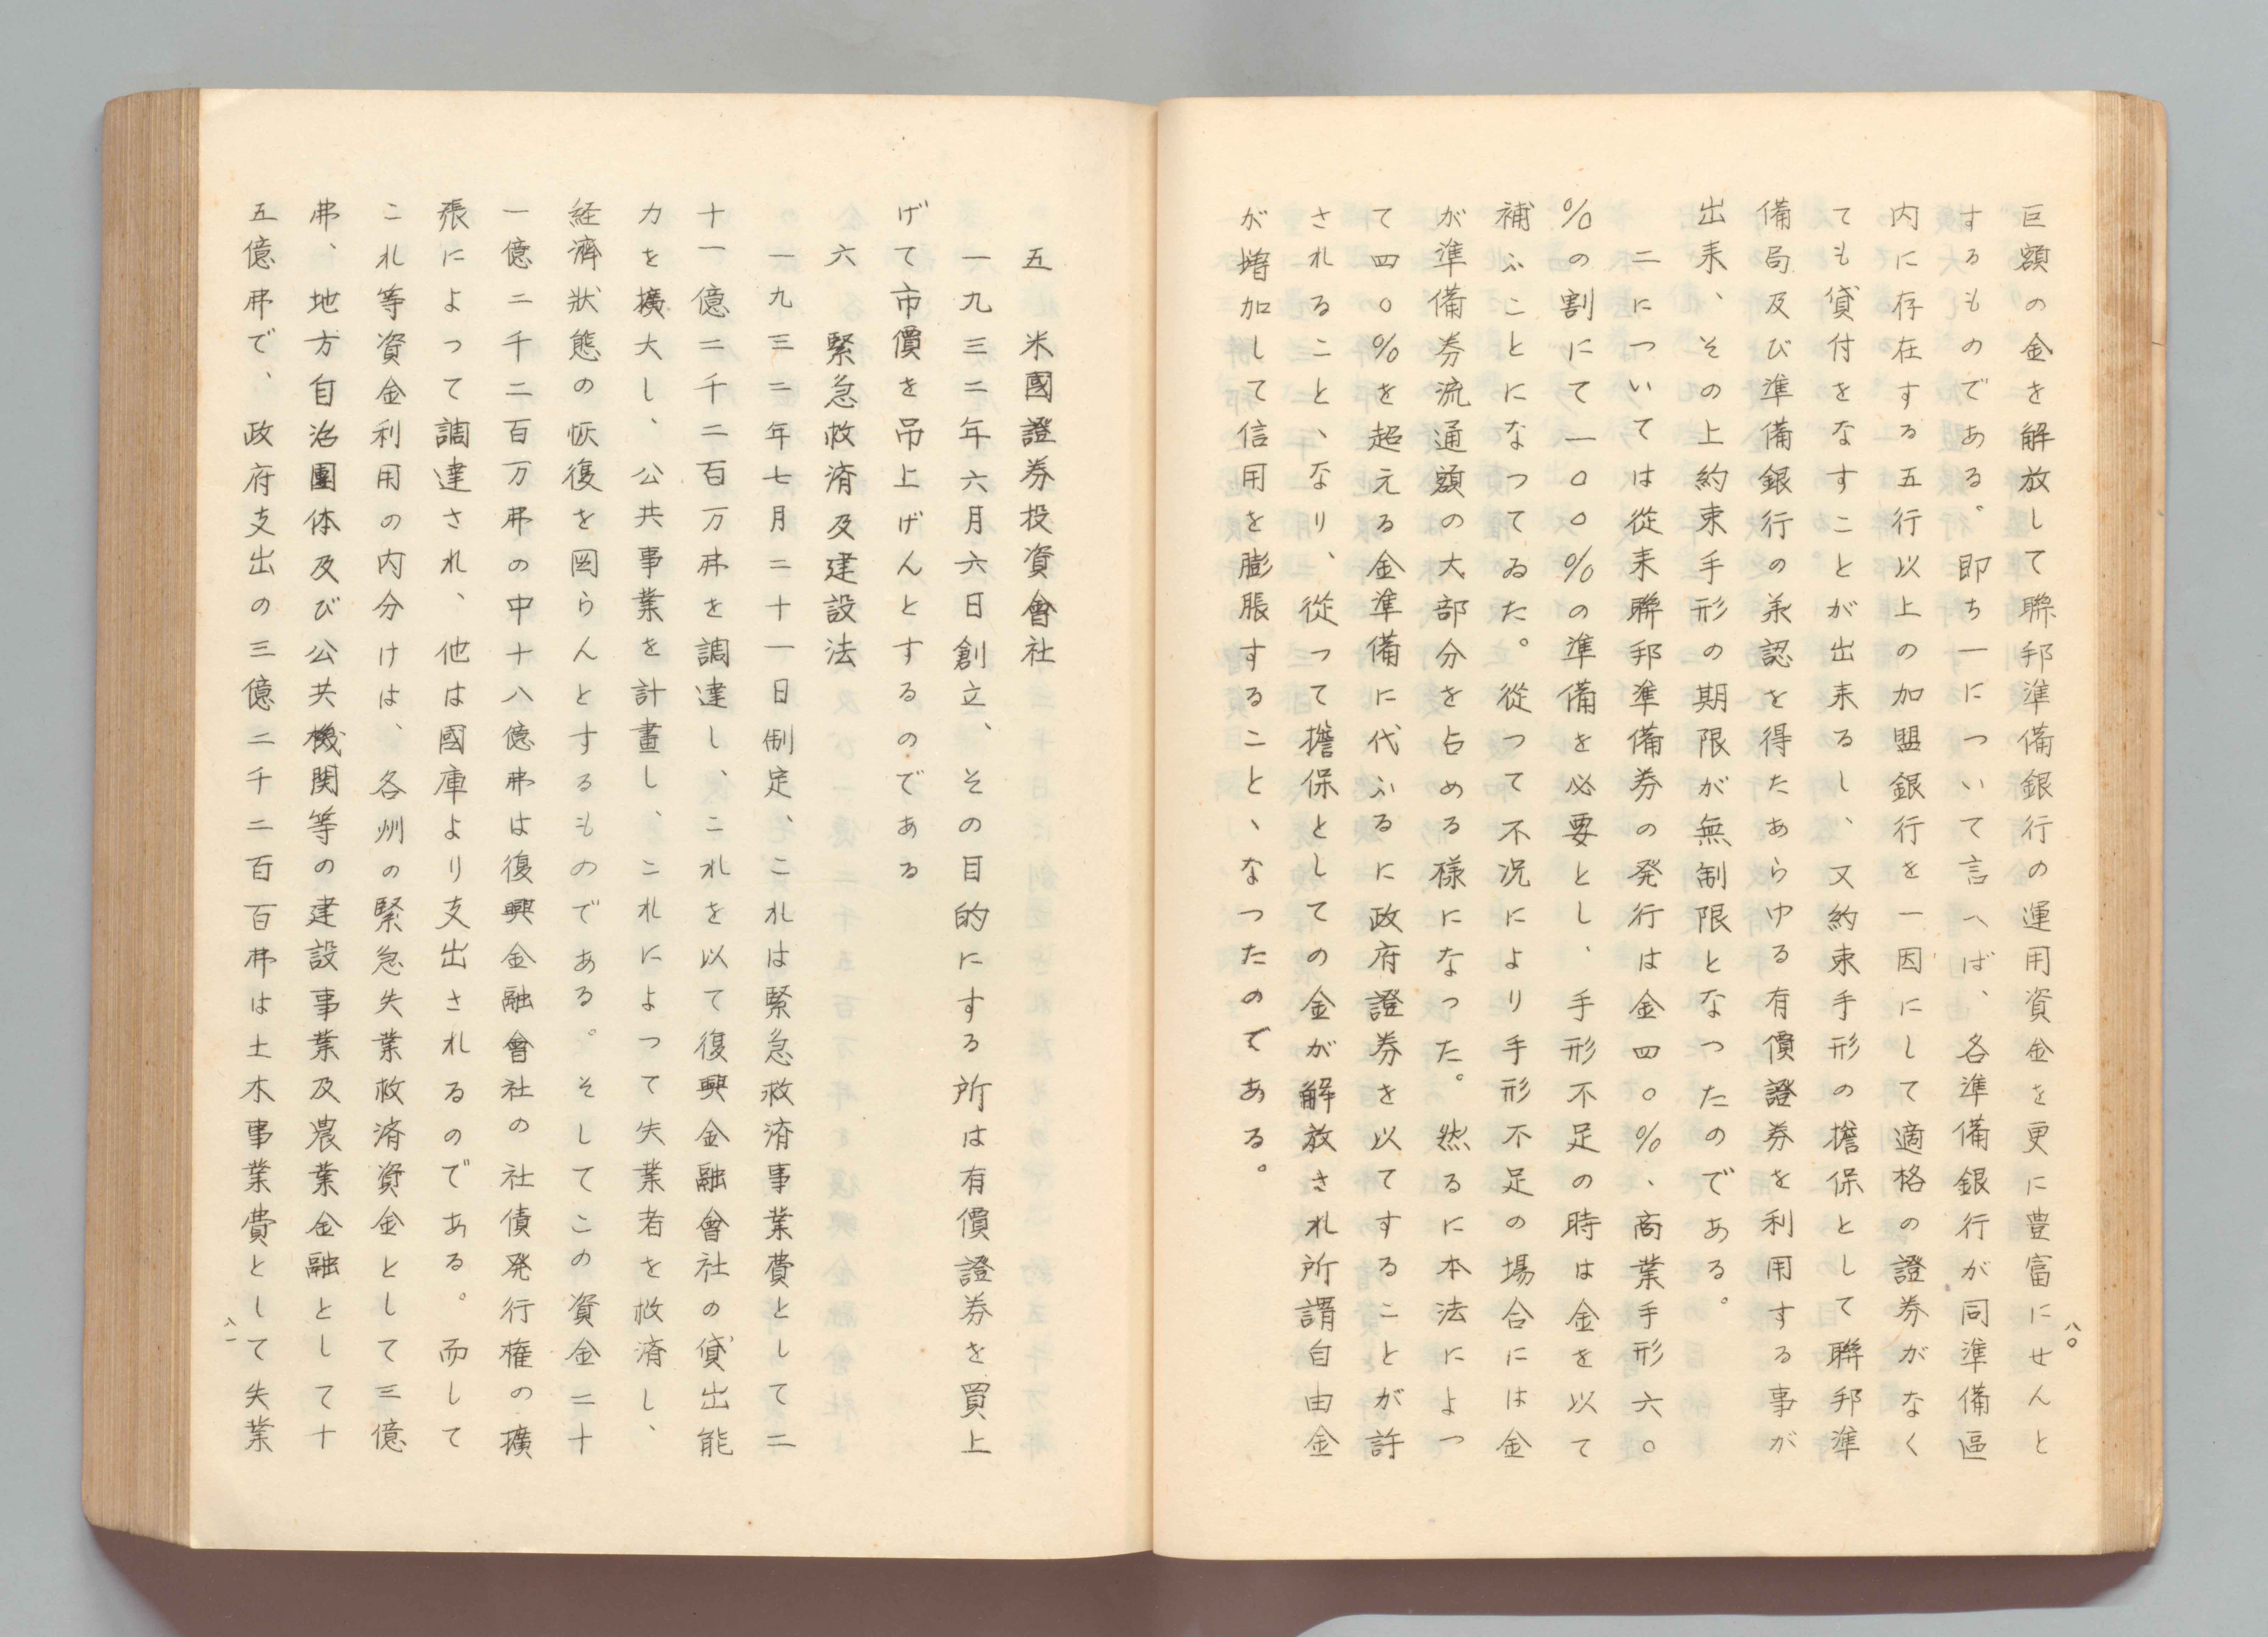 八〇
巨額の金を解放して聯邦準備銀行の運用資金を更に豊富にせんと
するものである。即ち一について言へば、各準備銀行が同準備區
内に存在する五行以上の加盟銀行を一因にして適格の證券がなく
ても貸付をなすことが出来るし、又約束手形の擔保として聯邦準
備局及び準備銀行の承認を得たあらゆる有價證券を利用する事が
出来、その上約束手形の期限が無制限となつたのである。
二については從来聯邦準備券の発行は金四〇%、商業手形六〇
%の割にて一〇〇%の準備を必要とし、手形不足の時は金を以て
補ふことになつてゐた。從つて不況により手形不足の場合には金
が準備券流通額の大部分を占める様になつた。然るに本法によつ
て四〇%を超える金準備に代ふるに政府證券を以てすることが許
されること、なり、從つて擔保としての金が解放され所謂自由金
が増加して信用を膨脹すること、なつたのである。
五　米國證券投資會社
一九三二年六月六日創立、その目的にする所は有價證券を買上
げて市價を吊上げんとするのである
六　緊急救済及建設法
一九三二年七月二十一日制定、これは緊急救済事業費として二
十一億二千二百万弗を調達し、これを以て復興金融會社の貸出能
力を擴大し、公共事業を計畫し、これによつて失業者を救済し、
経濟狀態の恢復を図らんとするものである。そしてこの資金二十
一億二千二百万弗の中十八億弗は復興金融會社の社債発行権の擴
張によつて調達され、他は國庫より支出されるのである。而して
これ等資金利用の内分けは、各州の緊急失業救済資金として三億
弗、地方自治團体及び公共機関等の建設事業及農業金融として十
五億弗で、政府支出の三億二千二百百弗は土木事業費として失業
八一